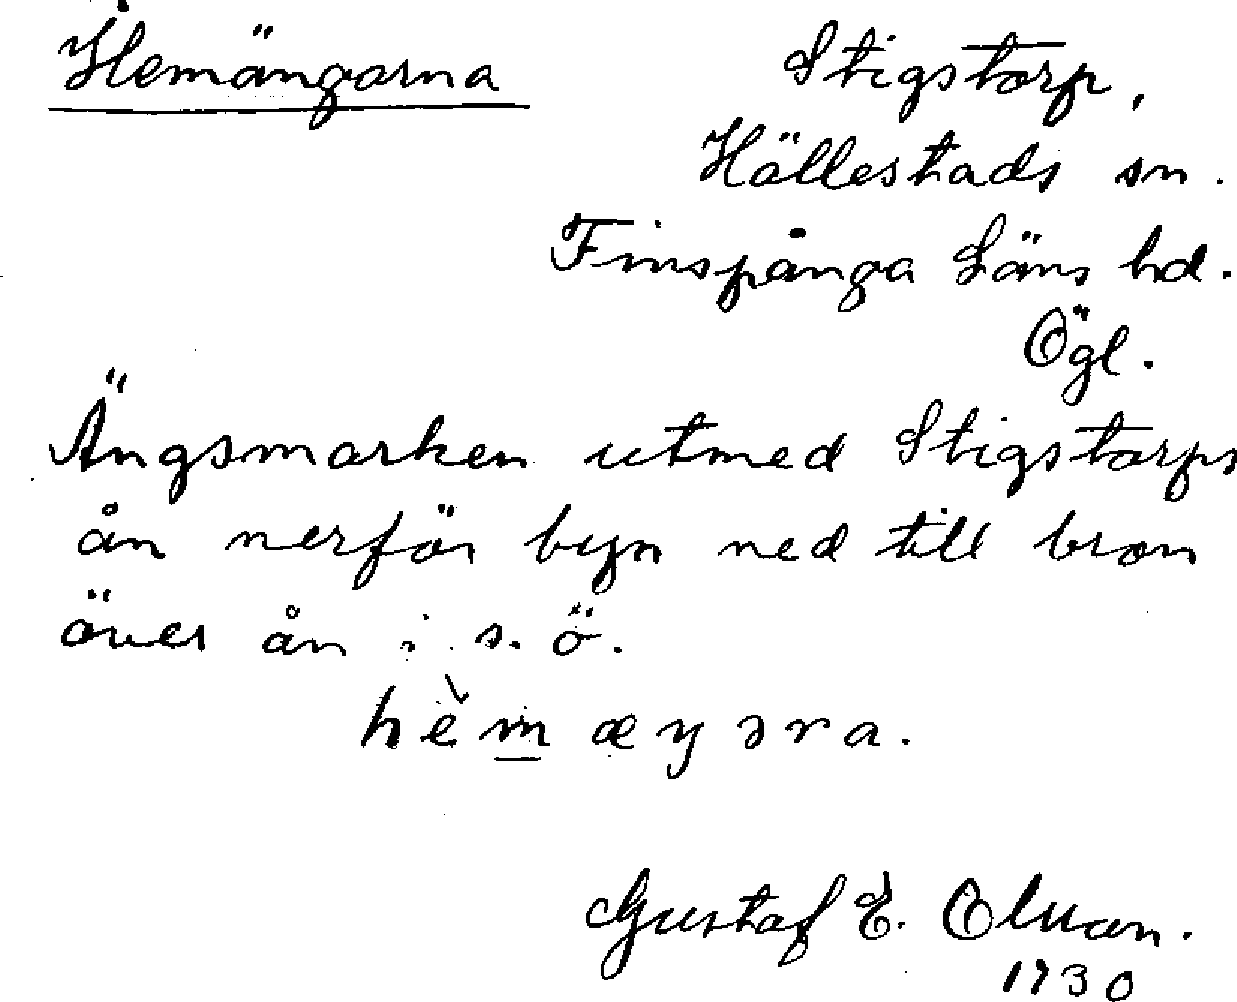 Hemängarna
Stigstorp,
Hällestads sn.
Finspånga Läns hd.
Ögl.
Ängsmarken utmed Stigstorps
ån nerför byn ned till bron
över ån i s.ö.
hèmæŋəra.
Gustaf E. Olson.
1930